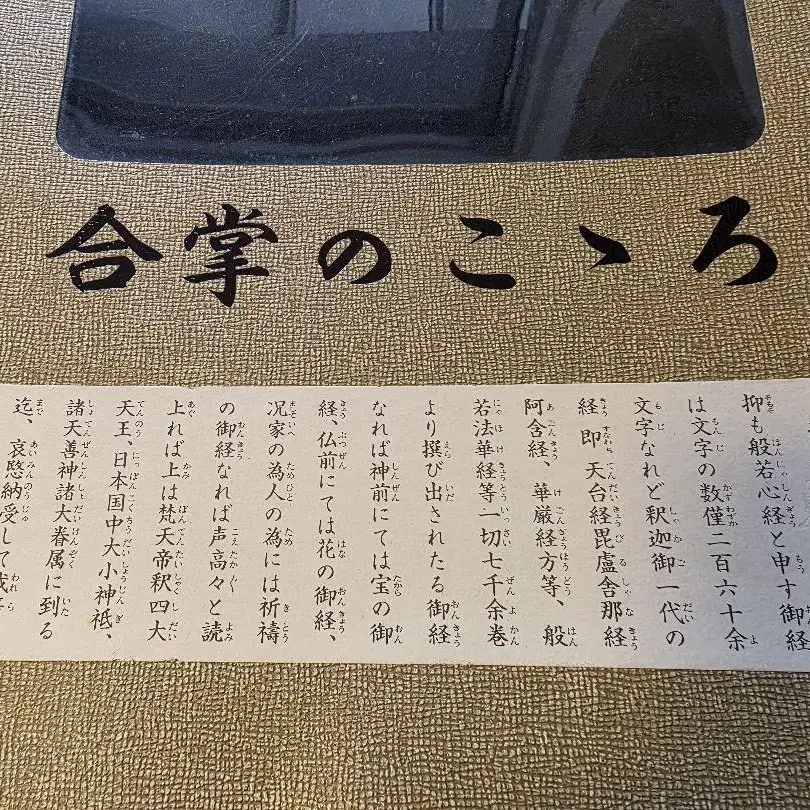 合掌のこゝろ
抑も般若心経と申す御経
は文字の数僅二百六十余
文字なれど釈迦御一代の
経即天台経毘盧舎那経
阿含経、華厳経方等、般
若法華経等一切七千余巻
より撰び出されたる御経
なれば神前にては宝の御
経、仏前にては花の御経、
況家の為人の為には祈祷
の御経なれば声高々と読
上れば上は梵天帝釈四大
天王、日本国中大小神祇、
諸天善神諸大眷属に到る
迄、哀愍納受して